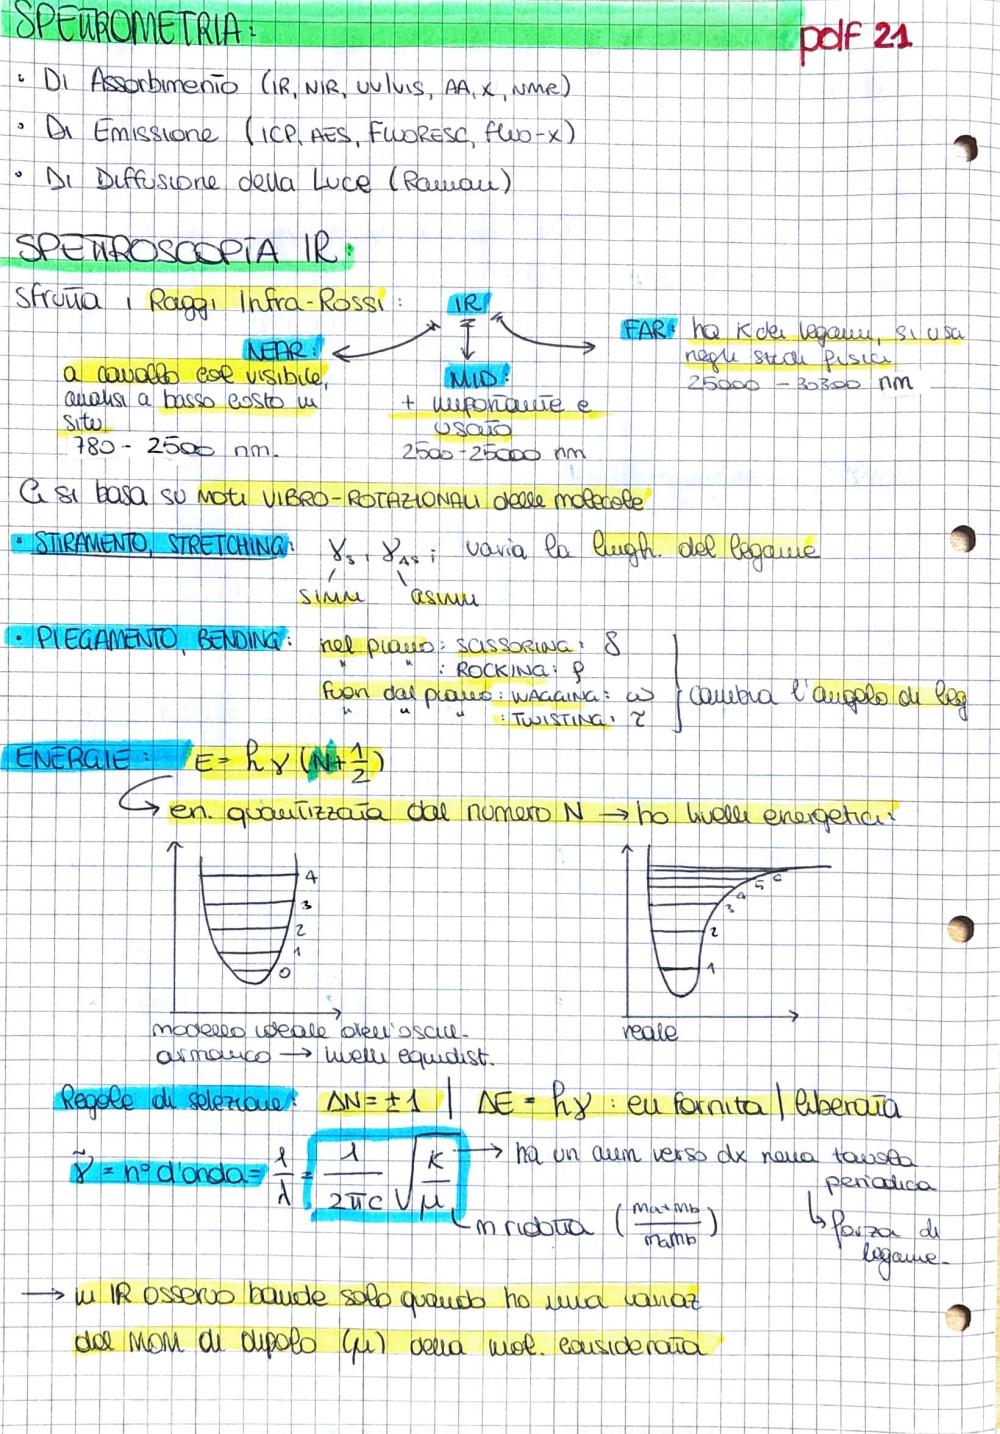 SPETTROMETRIA:
pdf 21
• Di Assorbimento (IR, NIR, UV/VIS, AA, X, NMR)
• Di Emissione (ICP, AES, FLUORESC, fluo-x)
• Di Diffusione della Luce (Raman)
SPETTROSCOPIA IR:
Sfrutta i Raggi Infra-Rossi:
IR
NEAR:
a cavallo col visibile,
analisi a basso costo in
situ
780 - 2500 nm.
MID:
+ importante e
usato
2500-25000 nm
FAR: ho K dei legami, si usa
negli studi fisici
25000 - 30300 nm
Ci si basa su MOTI VIBRO-ROTAZIONALI delle molecole
• STIRAMENTO, STRETCHING: γs, γAS; varia la lungh. del legame
simm asimm
• PIEGAMENTO, BENDING: nel piano: SCISSORING: δ
" " : ROCKING: ρ
fuori dal piano: WAGGING: ω
" " " : TWISTING: τ
cambia l'angolo di leg
ENERGIE: E = hγ (N+1/2)
↳ en. quantizzata dal numero N → ho livelli energetici:
4
3
2
1
0
6
5
4
3
2
1
modello ideale dell'oscill.
armonico → livelli equidist.
reale
Regole di selezione: ΔN = ±1 | ΔE = hγ : en fornita | liberata
γ̃ = n° d'onda = 1/λ = 1/2πc √K/μ → ha un aum verso dx nella tavola
periodica
↳ forza di
legame-
m ridotta (ma+mb/mamb)
→ in IR osservo bande solo quando ho una variaz
del MOM di dipolo (μ) della mol. considerata